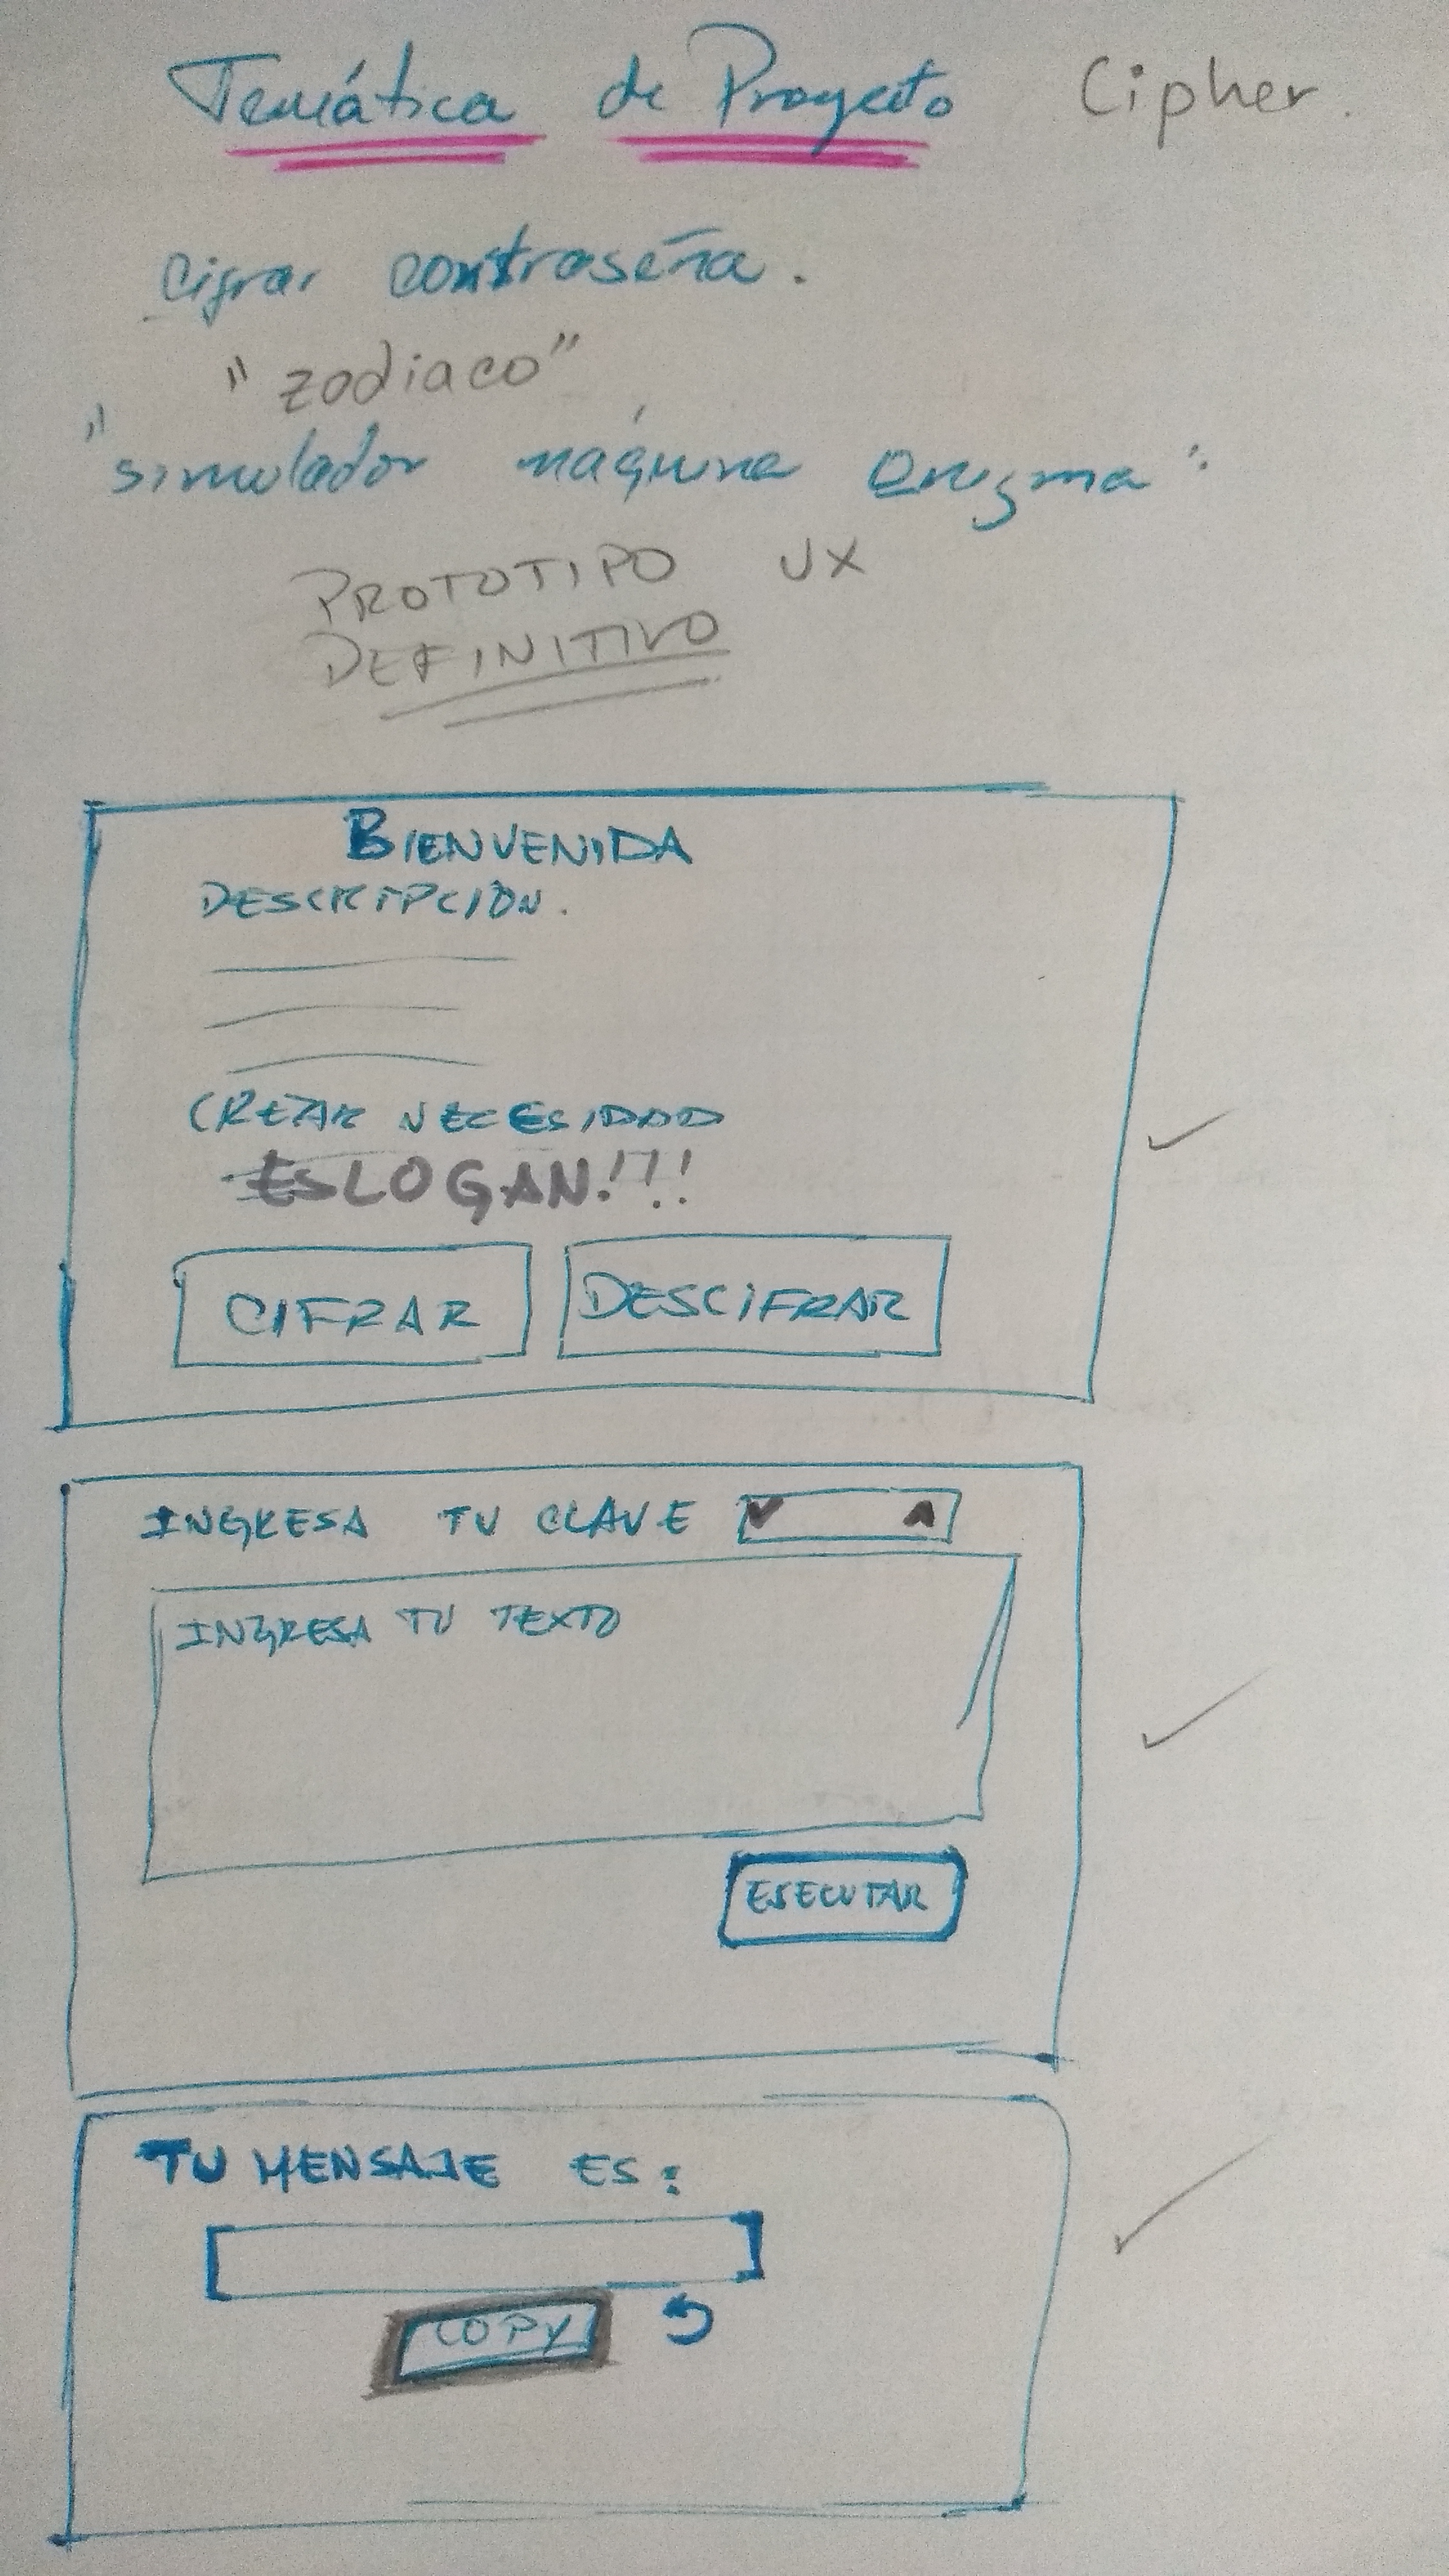 Temática de Proyecto Cipher.
Cifrar contraseña.
"zodiaco"
"simulador máquina enigma"
PROTOTIPO UX
DEFINITIVO
BIENVENIDA
DESCRIPCIÓN.
CREAR NECESIDAD
ESLOGAN!!!
CIFRAR DESCIFRAR
INGRESA TU CLAVE
INGRESA TU TEXTO
EJECUTAR
TU MENSAJE ES:
COPY